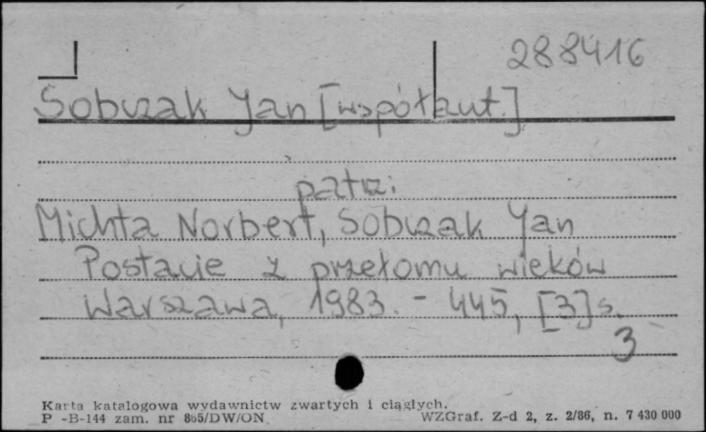 288416
Sobczak Jan [współaut.]
patrz:
Michta Norbert, Sobczak Jan
Postacie z przełomu wieków
Warszawa, 1983. - 445, [3] s.
3
Karta katalogowa wydawnictw zwartych i ciągłych.
P -B-144 zam. nr 865/DW/ON WZGraf. Z-d 2, z. 2/86, n. 7 430 000